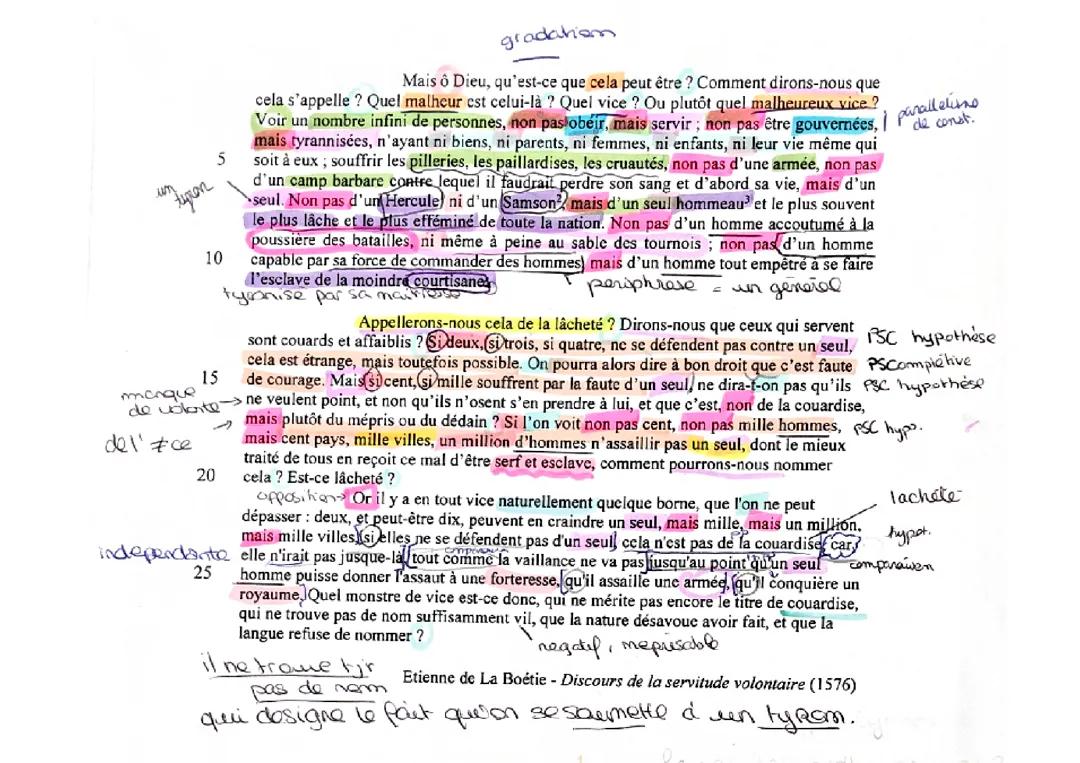 gradation
Mais ô Dieu, qu'est-ce que cela peut être ? Comment dirons-nous que
cela s'appelle ? Quel malheur est celui-là ? Quel vice ? Ou plutôt quel malheureux vice ?
parallélisme
Voir un nombre infini de personnes, non pas obéir, mais servir ; non pas être gouvernées,
de const.
mais tyrannisées, n'ayant ni biens, ni parents, ni femmes, ni enfants, ni leur vie même qui
5 soit à eux ; souffrir les pilleries, les paillardises, les cruautés, non pas d'une armée, non pas
un
tyran
d'un camp barbare contre lequel il faudrait perdre son sang et d'abord sa vie, mais d'un
seul. Non pas d'un Hercule ni d'un Samson², mais d'un seul hommeau³ et le plus souvent
le plus lâche et le plus efféminé de toute la nation. Non pas d'un homme accoutumé à la
poussière des batailles, ni même à peine au sable des tournois ; non pas d'un homme
10 capable par sa force de commander des hommes, mais d'un homme tout empêtré à se faire
l'esclave de la moindre courtisane.
tyrannise par sa maitresse
periphrase = un général
Appellerons-nous cela de la lâcheté ? Dirons-nous que ceux qui servent
sont couards et affaiblis ? Si deux, si trois, si quatre, ne se défendent pas contre un seul,
PSC hypothèse
cela est étrange, mais toutefois possible. On pourra alors dire à bon droit que c'est faute
PSComplétive
15 de courage. Mais si cent, si mille souffrent par la faute d'un seul, ne dira-t-on pas qu'ils
PSC hypothèse
manque
de volonté
ne veulent point, et non qu'ils n'osent s'en prendre à lui, et que c'est, non de la couardise,
mais plutôt du mépris ou du dédain ? Si l'on voit non pas cent, non pas mille hommes,
PSC hyp.
de l'≠ce
mais cent pays, mille villes, un million d'hommes n'assaillir pas un seul, dont le mieux
traité de tous en reçoit ce mal d'être serf et esclave, comment pourrons-nous nommer
20 cela ? Est-ce lâcheté ?
opposition Or il y a en tout vice naturellement quelque borne, que l'on ne peut
lacheté
dépasser : deux, et peut-être dix, peuvent en craindre un seul, mais mille, mais un million,
mais mille villes, si elles ne se défendent pas d'un seul, cela n'est pas de la couardise, car,
hypot.
independante
elle n'irait pas jusque-là, tout comme la vaillance ne va pas jusqu'au point qu'un seul
comparaison
25 homme puisse donner l'assaut à une forteresse, qu'il assaille une armée, qu'il conquière un
royaume. Quel monstre de vice est-ce donc, qui ne mérite pas encore le titre de couardise,
qui ne trouve pas de nom suffisamment vil, que la nature désavoue avoir fait, et que la
langue refuse de nommer ?
negatif, meprisable
il ne trouve tjr
pas de nom
Etienne de La Boétie - Discours de la servitude volontaire (1576)
qui designe le fait qu'on se soumette à un tyran.